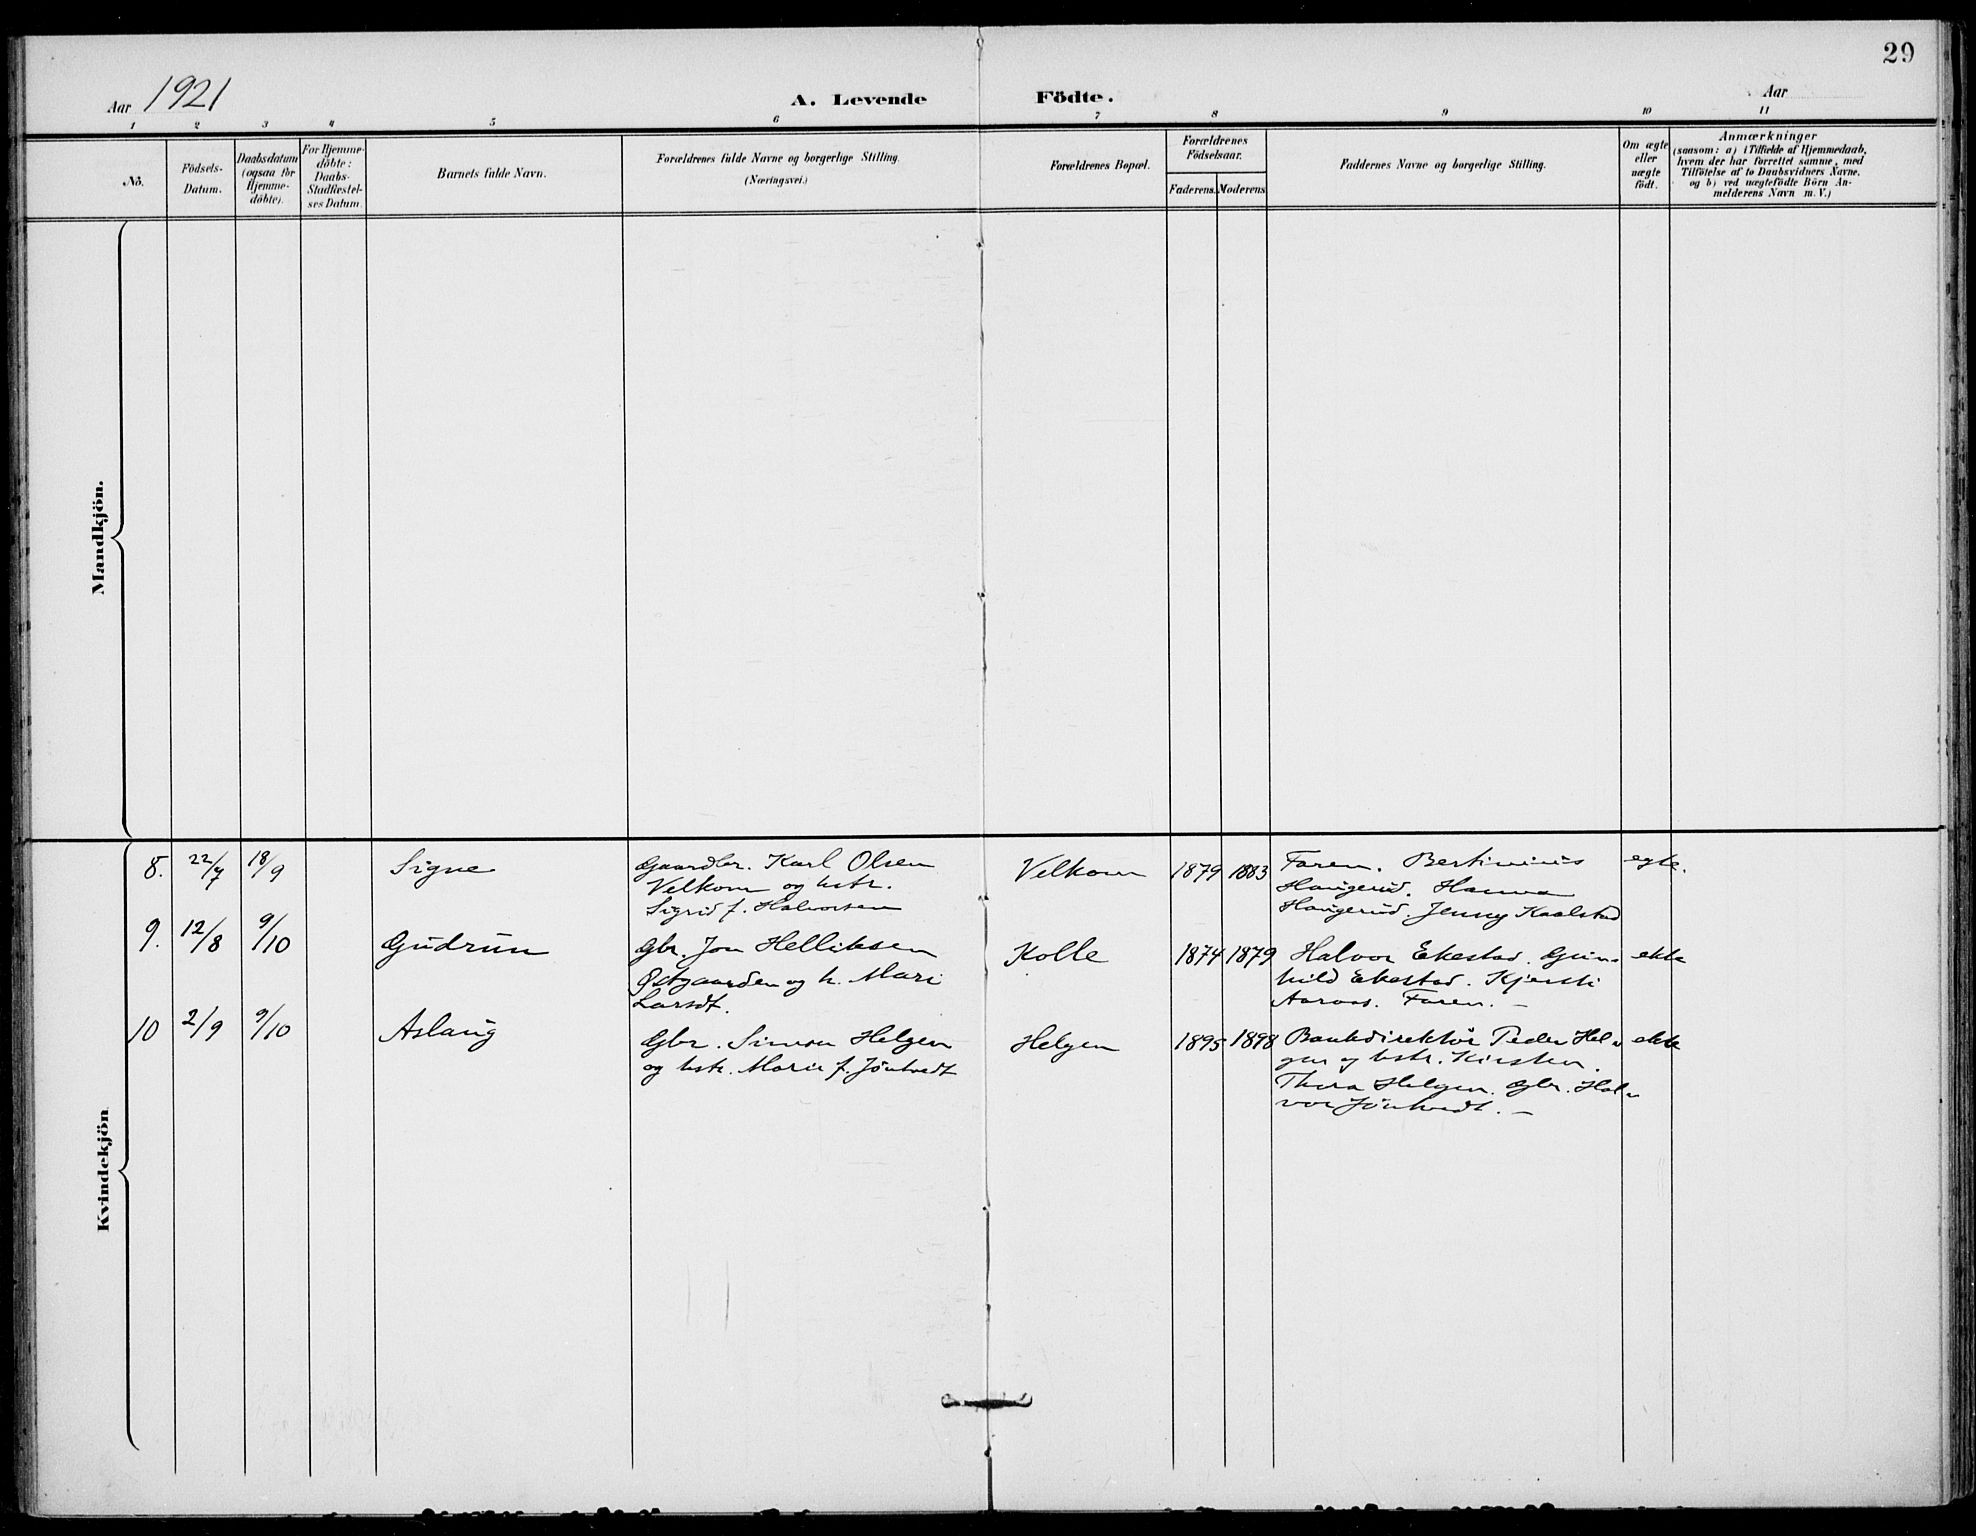 29
Aar 1921
A. Levende Födte.
Aar
1 2 3 4 5 6 7 8 9 10 11
No.
Födsels-
Datum.
Daabsdatum
(ogsaa for
Hjemme-
döbte).
For Hjemme-
döbte:
Daabs-
Stadfæstel-
ses Datum.
Barnets fulde Navn.
Forældrenes fulde Navne og borgerlige Stilling.
(Næringsvei.)
Forældrenes Bopæl.
Forældrenes
Födselsaar.
Faderens. Moderens.
Faddernes Navne og borgerlige Stilling.
Om ægte
eller
uægte
födt.
Anmærkninger
(saasom: a) i Tilfælde af Hjemmedaab,
hvem der har forrettet samme, med
Tilföielse af to Daabsvidners Navne,
og b) ved uægtefödte Börn An-
melderens Navn m. V.)
Mandkjön.
Kvindekjön.
8. 22/7 18/9 Signe
Gaardbr. Karl Olsen
Velkom og hstr.
Sigrid f. Halvorsen
Velkom 1879 1883
Faren. Bertinius
Haugerud. Hanna
Haugerud. Jenny Kaalstad
egte.
9. 12/8 9/10 Gudrun
Gbr. Jon Helliksen
Østgaarden og h. Mari
Larsdt.
Kolle 1874 1879
Halvor Ekestad. Gun-
hild Ekestad. Kjersti
Aaraas. Faren. —
ekte
10 2/9 9/10 Aslaug
Gbr. Simon Helgen
og hstr. Marie f. Jöntvedt
Helgen 1895 1898
Bankdirektör Peder Hel-
gen og hstr. Kirsten.
Thora Helgen. Gbr. Hal-
vor Jöntvedt. —
ekte